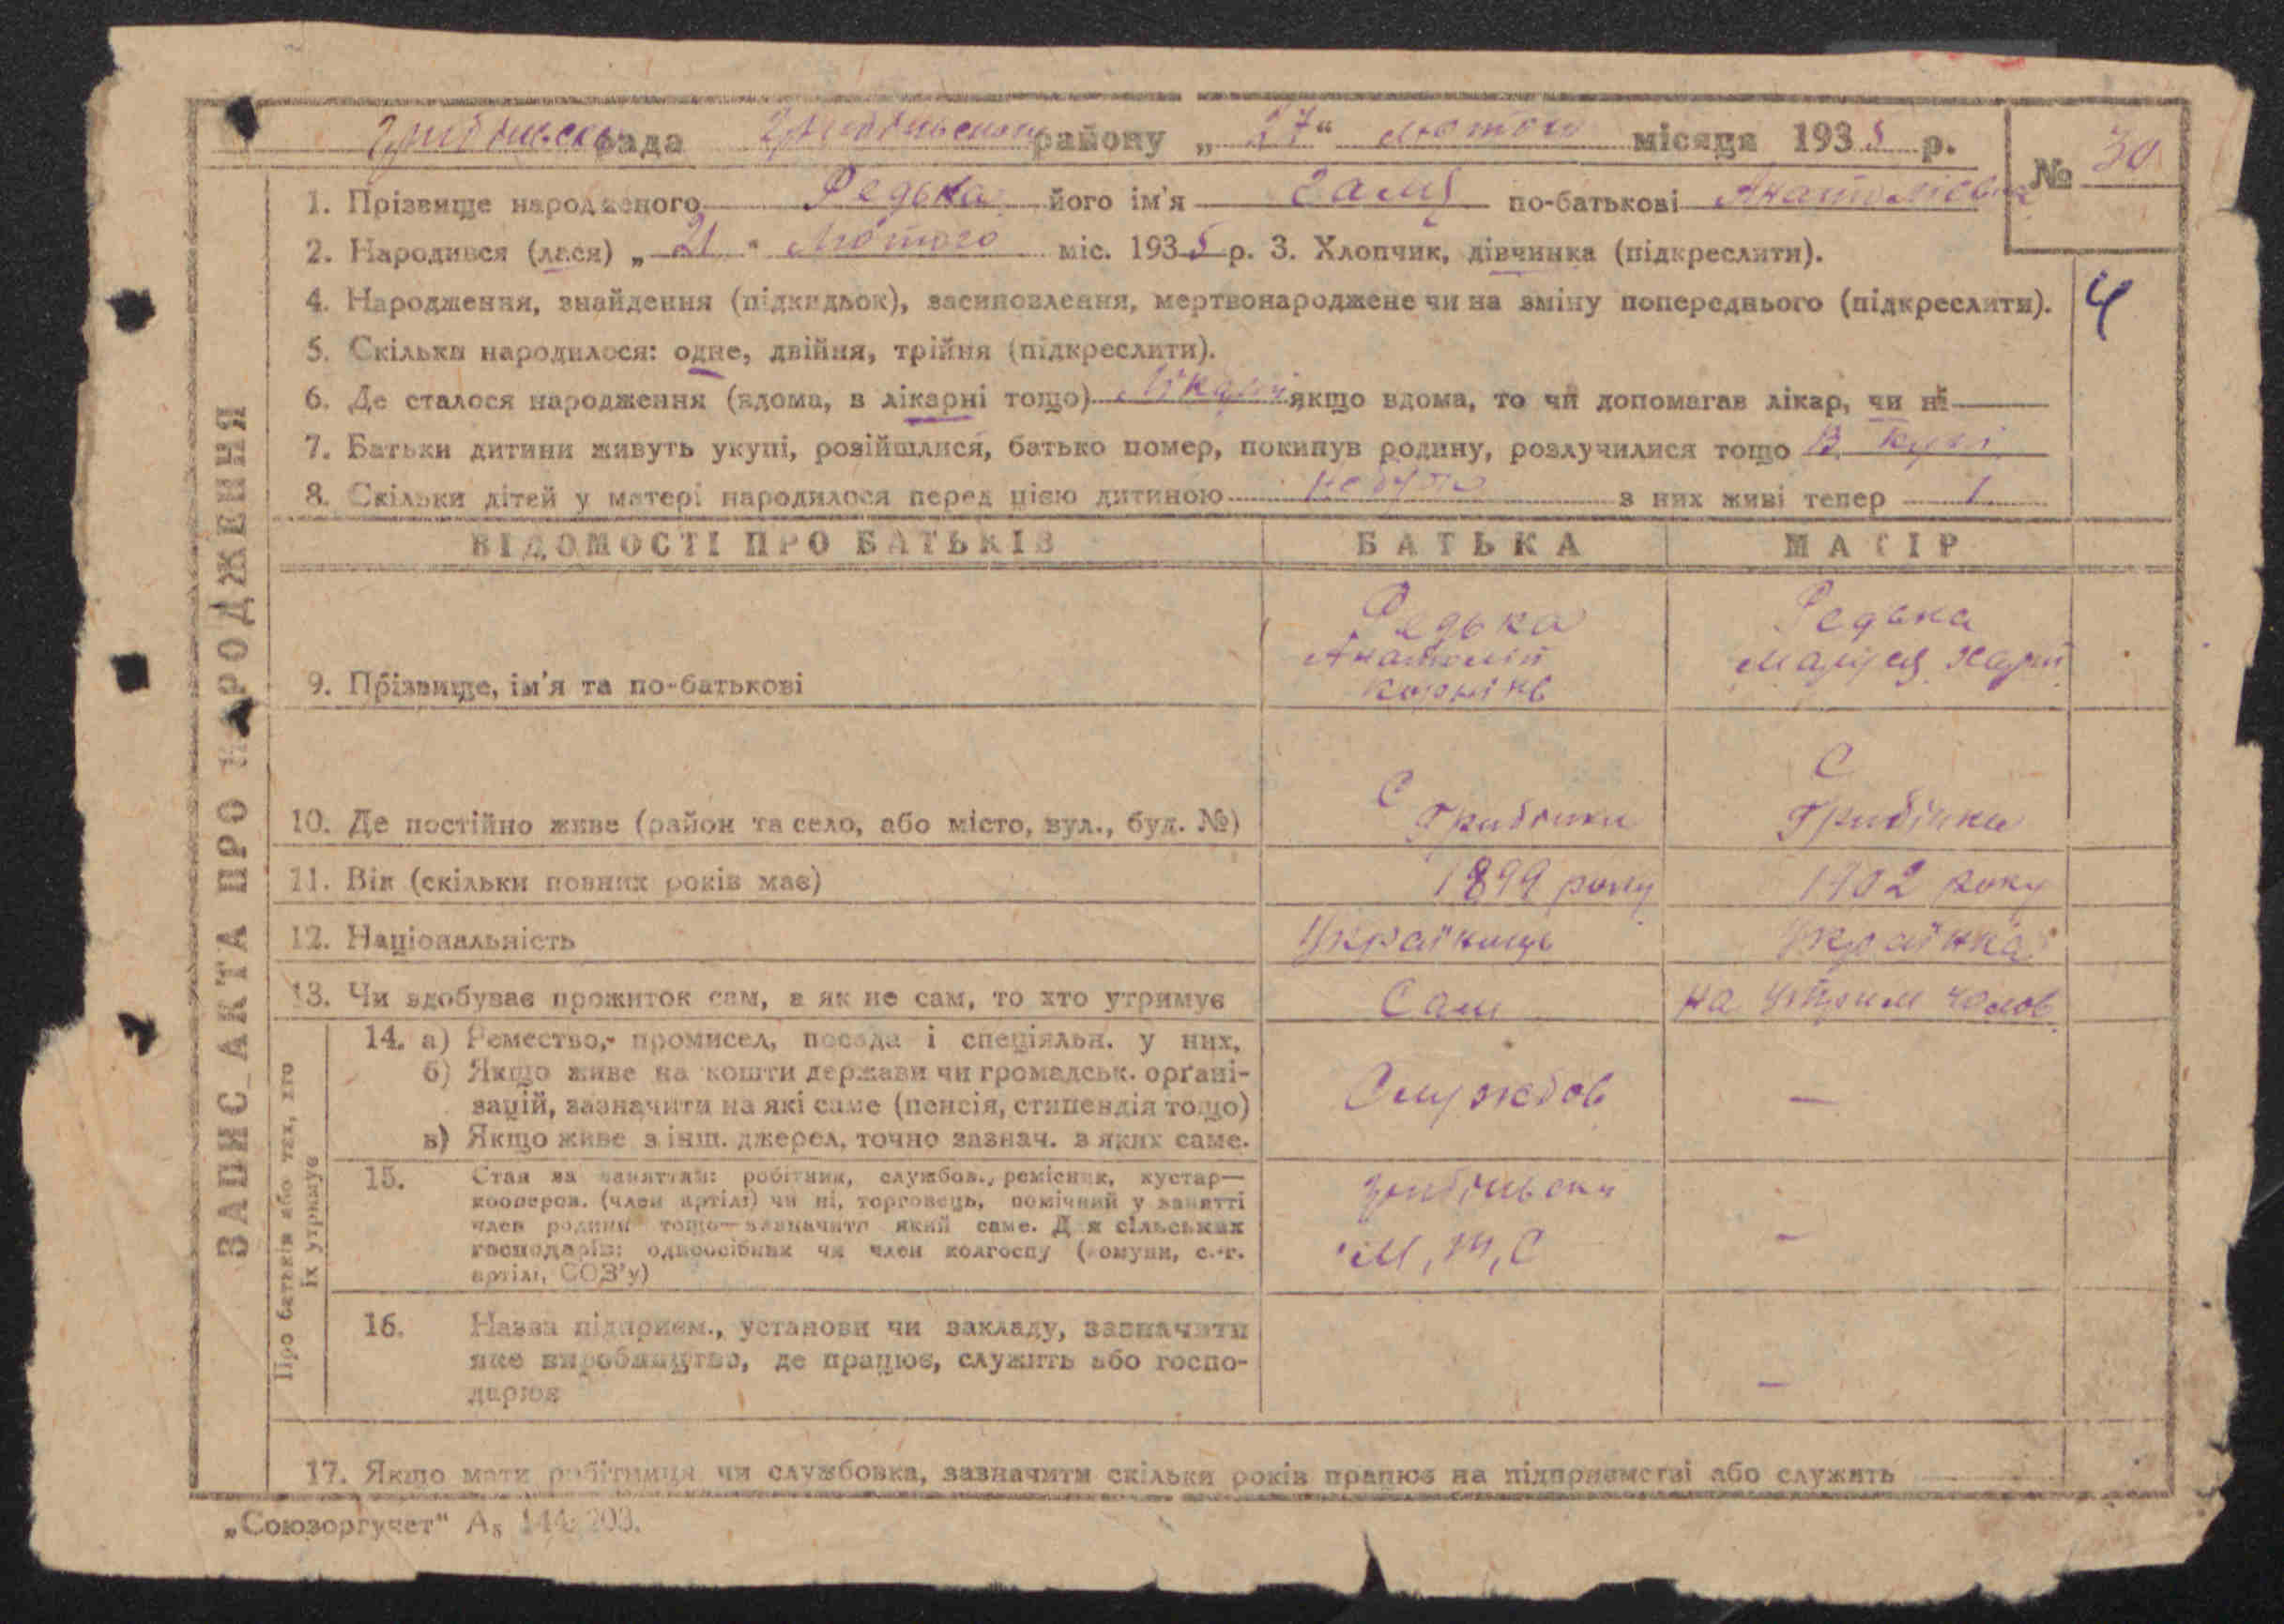 рада району „27“ лютого місяця 1935 р.
№ 30
1. Прізвище народженого Редька його ім'я по-батькові Анатоліевна
2. Народився (лася) „21“ Лютого міс. 1935 р. 3. Хлопчик, дівчинка (підкреслити).
4. Народження, знайдення (підкидьок), засиновлення, мертвонароджене чи на зміну попереднього (підкреслити).
4
5. Скільки народилося: одне, двійня, трійня (підкреслити).
6. Де сталося народження (вдома, в лікарні тощо) якщо вдома, то чи допомагав лікар, чи ні
7. Батьки дитини живуть укупі, розійшлися, батько помер, покинув родину, розлучилися тощо В купі
8. Скільки дітей у матері народилося перед цією дитиною з них живі тепер 1
ВІДОМОСТІ ПРО БАТЬКІВ БАТЬКА МАТІР
9. Прізвище, ім'я та по-батькові
Редька
Анатолій
Редька
Марія
10. Де постійно живе (район та село, або місто, вул., буд. №)
С
Грибінки
С
Грибінки
11. Вік (скільки повних років має) 1899 року 1902 року
12. Національність Українець Українка
13. Чи здобуває прожиток сам, а як не сам, то хто утримує Сам на утрим чолов
14. а) Ремество, промисел, посада і спеціяльн. у них,
б) Якщо живе на кошти держави чи громадськ. орґані-
зацій, зазначити на які саме (пенсія, стипендія тощо)
в) Якщо живе з інш. джерел, точно зазнач. з яких саме.
Службов —
15. Стан за заняттям: робітник, службов., ремісник, кустар—
кооперов. (член артілі) чи ні, торговець, помічний у занятті
член родини тощо—зазначити який саме. Для сільських
господарів: одноосібник чи член колгоспу (комуни, с.-г.
артілі, СОЗ'у)
М, т, С —
16. Назва підприєм., установи чи закладу, зазначити
яке виробництво, де працює, служить або госпо-
дарює
—
17. Якщо мати робітниця чи службовка, зазначити скільки років працює на підприємстві або служить
ЗАПИС АКТА ПРО НАРОДЖЕННЯ
Про батьків або тих, хто
їх утримує
„Союзоргучет“ А₅ 144 203.